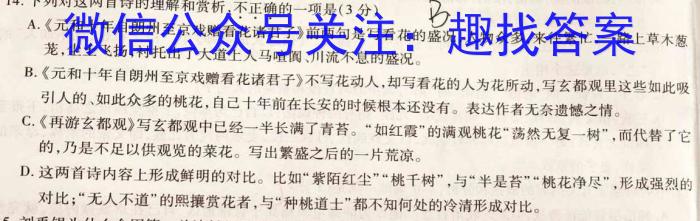 14. 下列对这两首诗的理解和赏析,不正确的一项是(3分) B
A.《元和十年自朗州至京戏赠看花诸君子》前两句是写看花的盛况 人物众多 来往繁忙 路上草木葱
茏,尘土飞扬 衬托出了大道上人马喧阗、川流不息的盛况。
微信公众号关注:趣找答案
B.《元和十年自朗州至京戏赠看花诸君子》不写花动人,却写看花的人为花所动,写玄都观里这些如此吸
引人的、如此众多的桃花,自己十年前在长安的时候根本还没有。表达作者无奈遗憾之情。
C.《再游玄都观》写玄都观中已经一半长满了青苔。“如红霞”的满观桃花“荡然无复一树”,而代替了它
的,乃是不足以供观览的菜花。写出繁盛之后的一片荒凉。
D. 这两首诗内容上形成鲜明的对比。比如“紫陌红尘”“桃千树”,与“半是苔”“桃花净尽”,形成强烈的
对比;“无人不道”的熙攘赏花者,与“种桃道士”都不知何处的冷清形成对比。